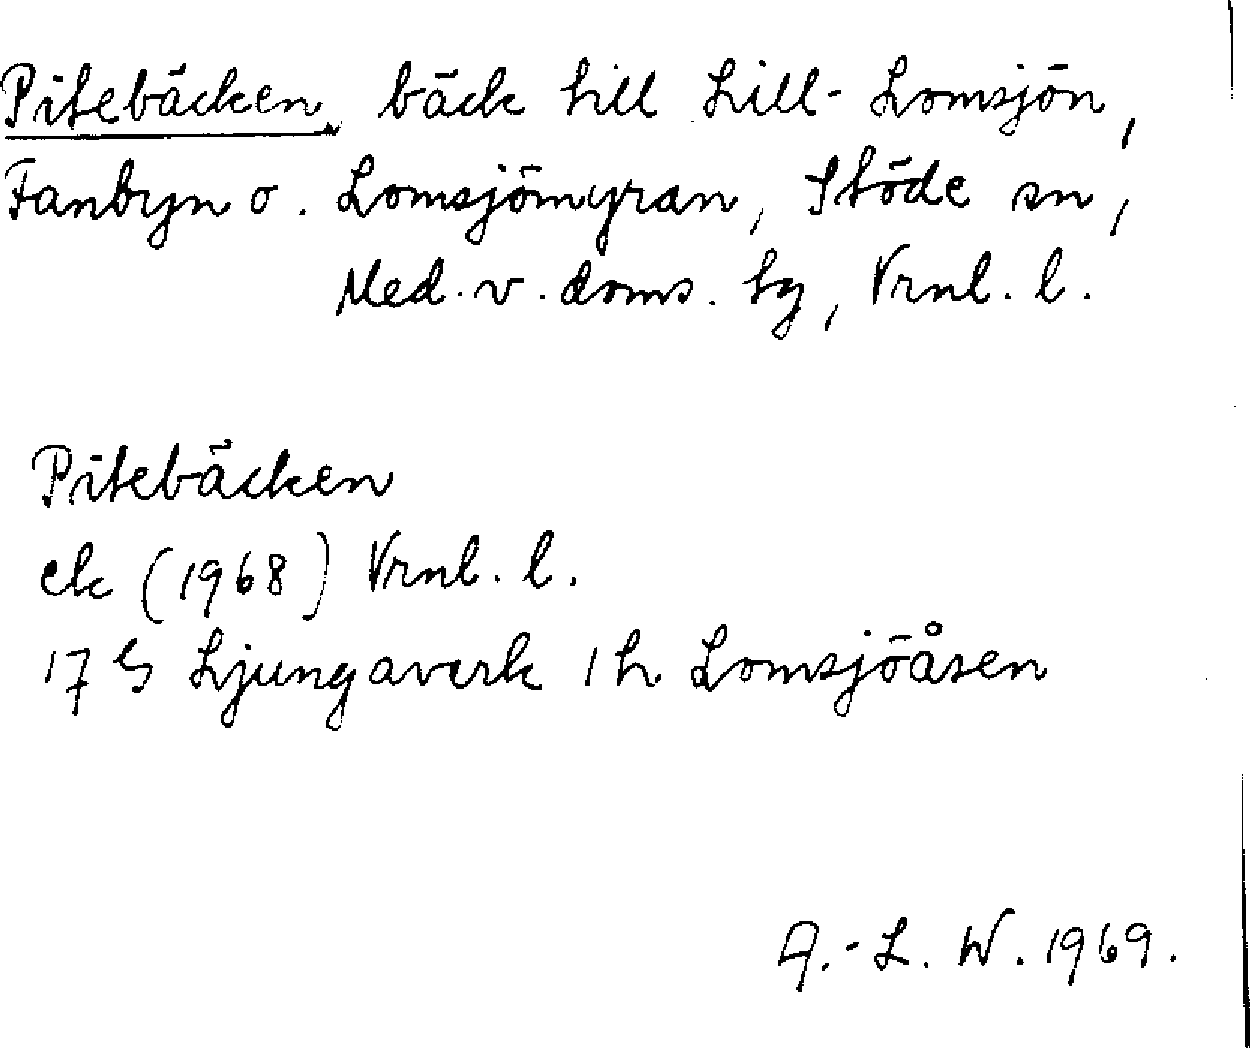 Pitebäcken, bäck till Lill-Lomsjön,
Fanbyn o. Lomsjömyran, Stöde sn,
Med. v. doms. tg, Vrnl. l.
Pitebäcken
ek (1968) Vrnl. l.
17 G Ljungaverk 1 h Lomsjöåsen
A.-L. W. 1969.